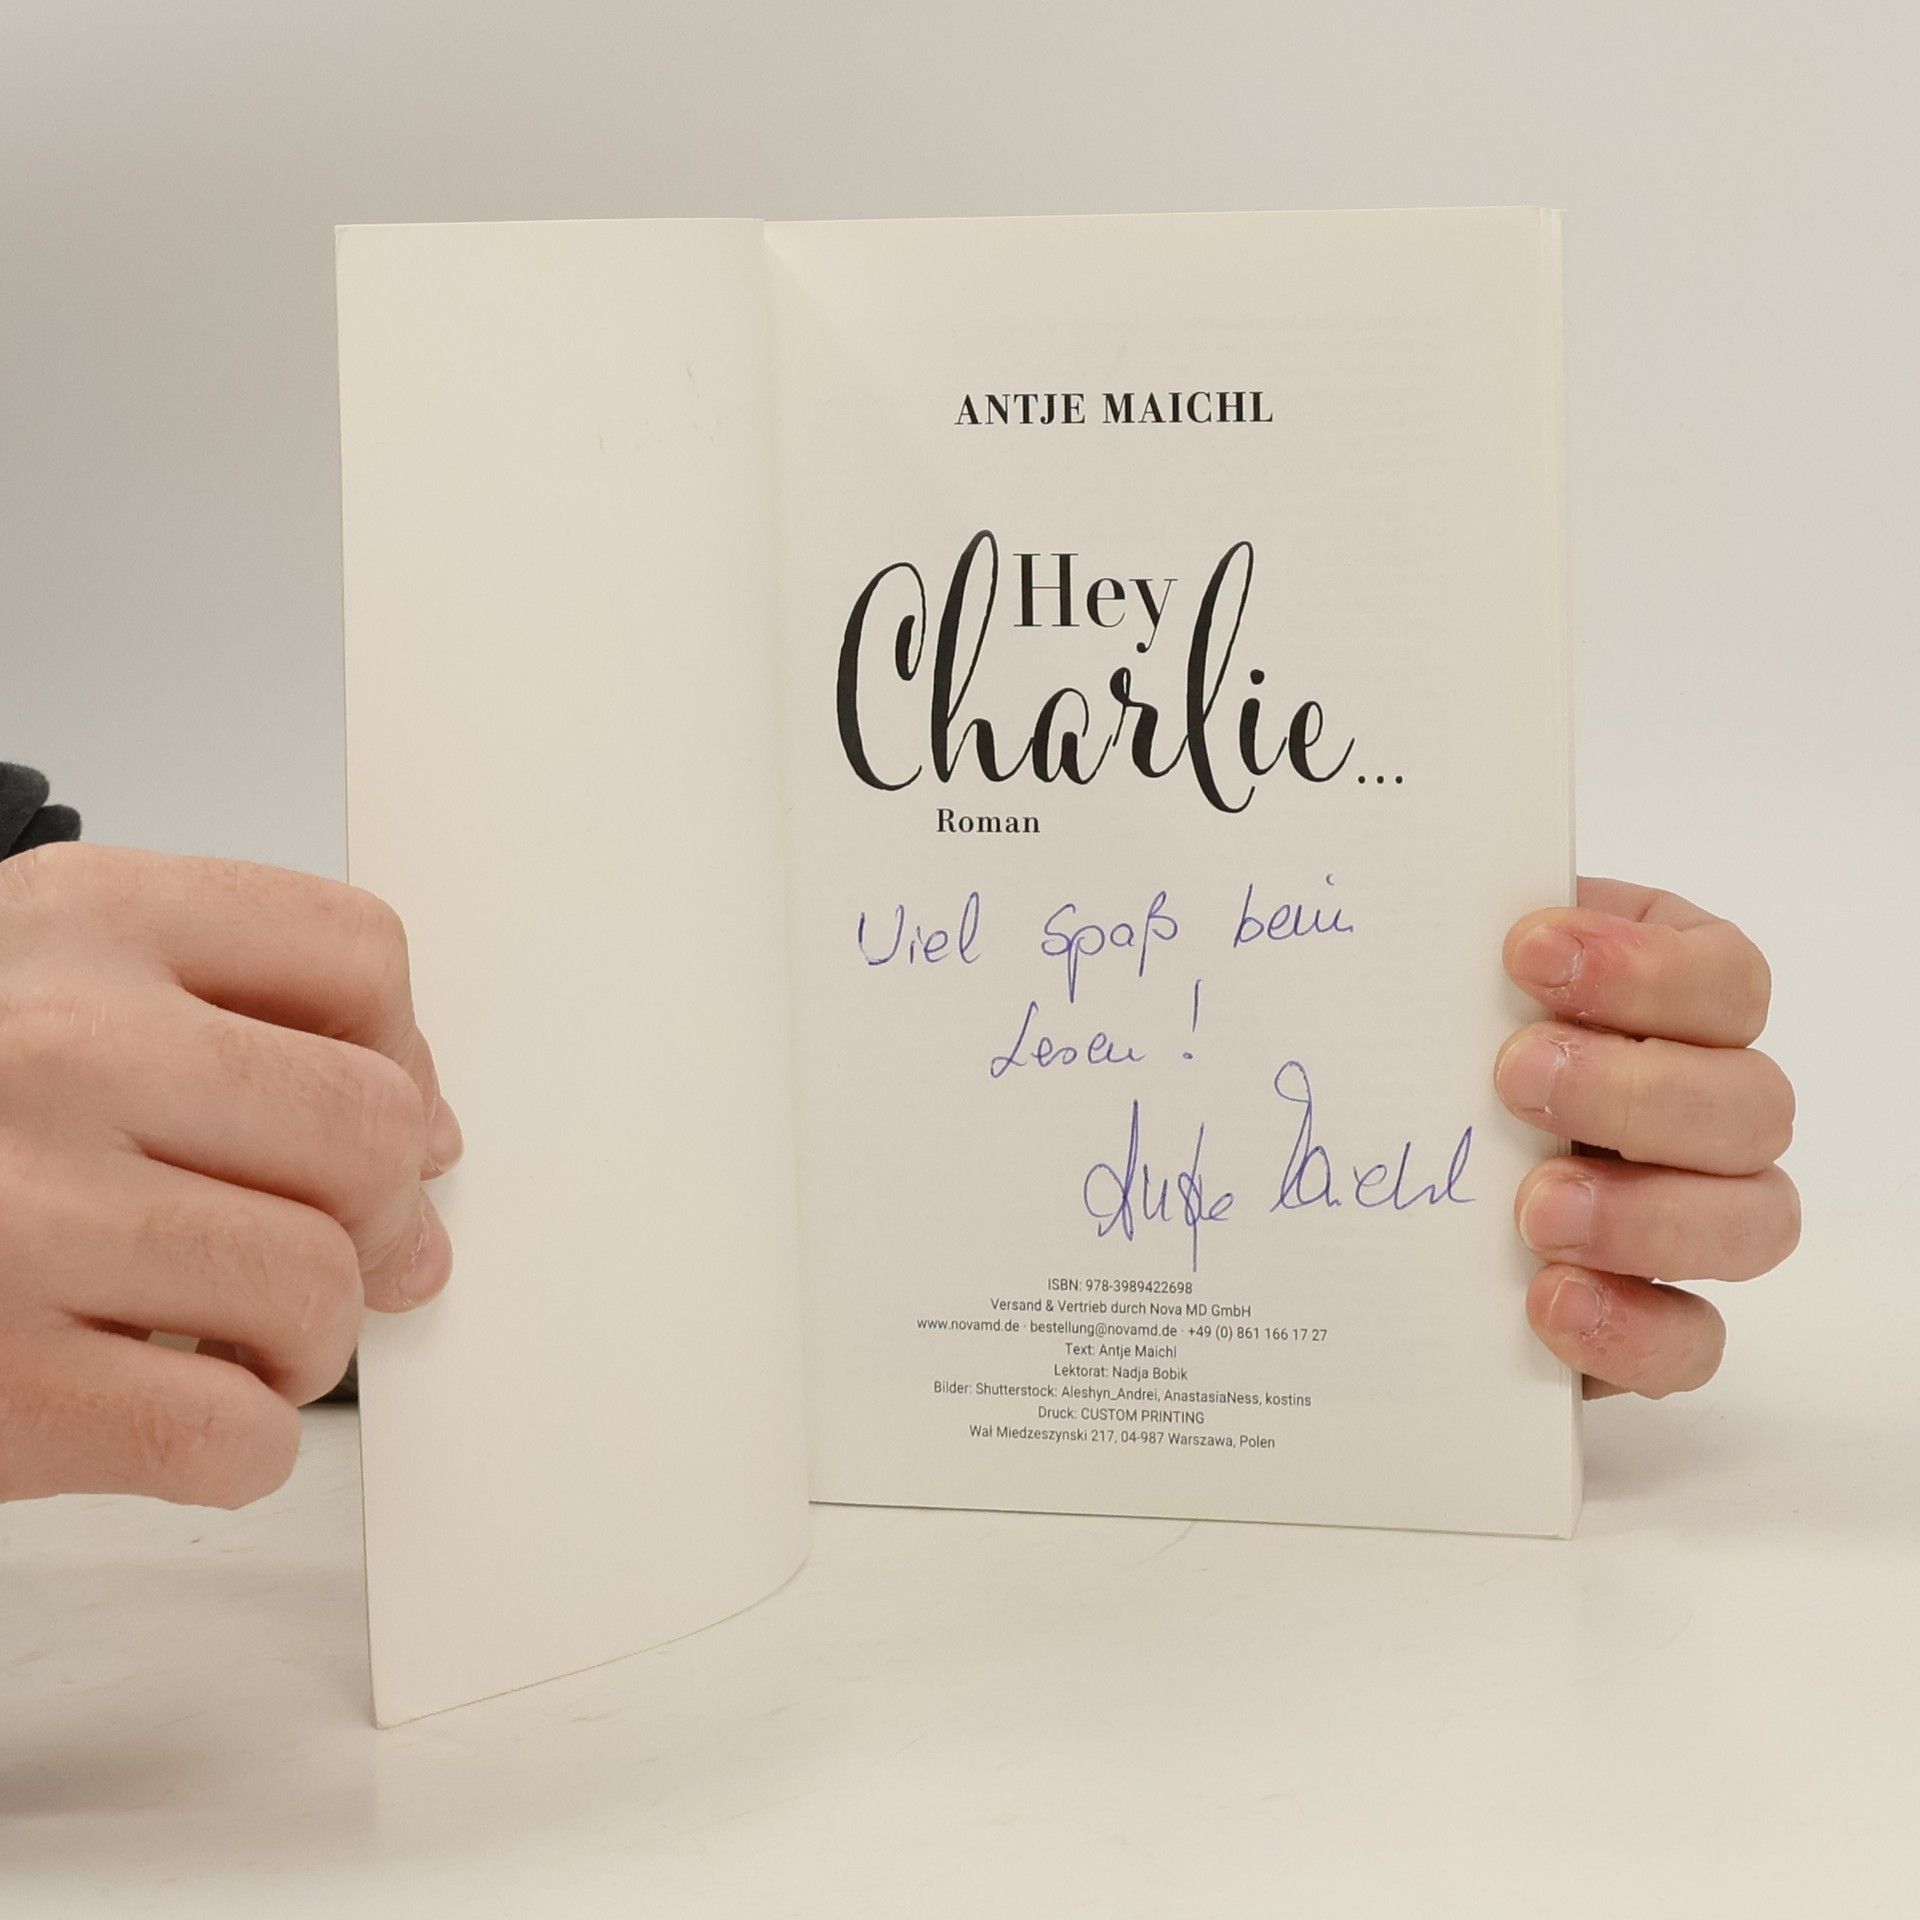 ANTJE MAICHL
Hey
Charlie...
Roman
Viel Spaß beim
Lesen!
Antje Maichl
ISBN: 978-3989422698
Versand & Vertrieb durch Nova MD GmbH
www.novamd.de · bestellung@novamd.de · +49 (0) 861 166 17 27
Text: Antje Maichl
Lektorat: Nadja Bobik
Bilder: Shutterstock: Aleshyn_Andrei, AnastasiaNess, kostins
Druck: CUSTOM PRINTING
Wał Miedzeszynski 217, 04-987 Warszawa, Polen